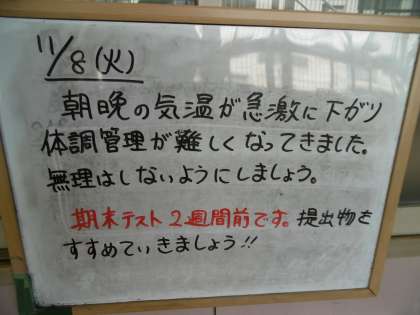 11/8(火)
朝晩の気温が急激に下がり
体調管理が難しくなってきました。
無理はしないようにしましょう。
期末テスト2週間前です。提出物を
すすめていきましょう!!